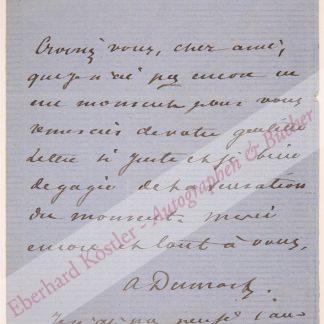 Croiriez vous, cher ami,
que je n'ai pas encore eu
un moment pour vous
remercier de votre
lettre si juste et si bien
dégagée de la
du moment. merci
encore et tout à vous,
A Dumas f.
je n'ai pas
Eberhard Köstler - Autographen & Bücher